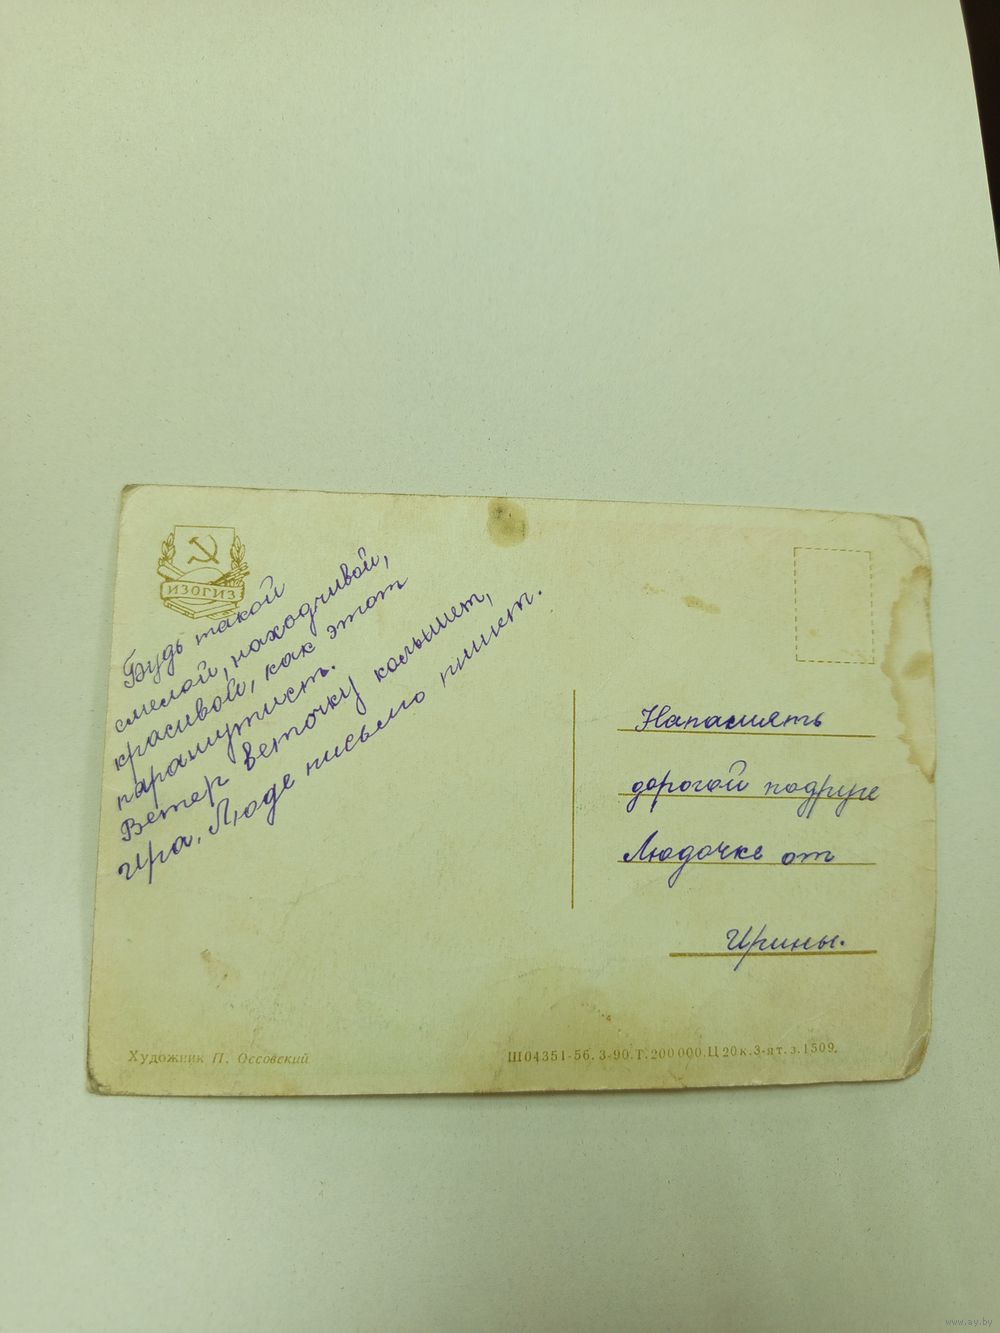 ИЗОГИЗ
Будь такой
смелой, находчивой,
красивой, как этот
парашутист.
Ветер веточку колышет,
Ира, Люде письмо пишет.
Напасмять
дорогой подруге
Людочке от
Ирины.
Художник П. Оссовский
Ш04351-5б. 3-90. Т. 200 000. Ц 20 к. 3-ят. з. 1509.
www.ay.by